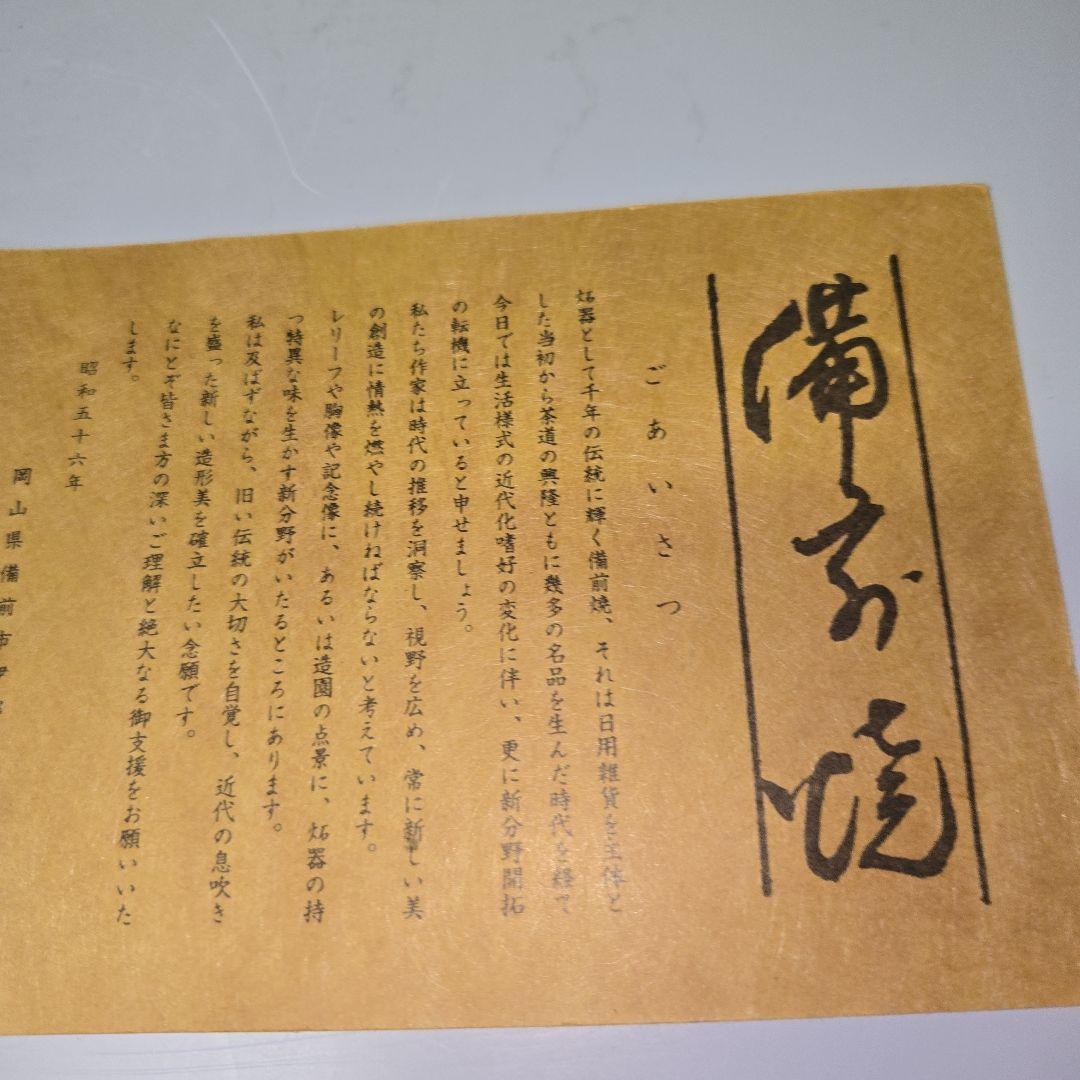 備前焼
ごあいさつ
炻器として千年の伝統に輝く備前焼、それは日用雑貨を主体と
した当初から茶道の興隆ともに幾多の名品を生んだ時代を経て
今日では生活様式の近代化嗜好の変化に伴い、更に新分野開拓
の転機に立っていると申せましょう。
私たち作家は時代の推移を洞察し、視野を広め、常に新しい美
の創造に情熱を燃やし続けねばならないと考えています。
レリーフや胸像や記念像に、あるいは造園の点景に、炻器の持
つ特異な味を生かす新分野がいたるところにあります。
私は及ばずながら、旧い伝統の大切さを自覚し、近代の息吹き
を盛った新しい造形美を確立したい念願です。
なにとぞ皆さま方の深いご理解と絶大なる御支援をお願いいた
します。
昭和五十六年
岡山県備前市伊